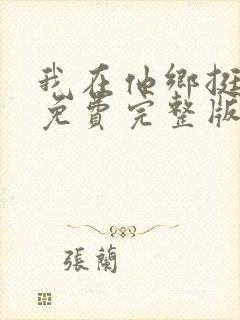 我在他鄉挺
免費完整版
張蘭